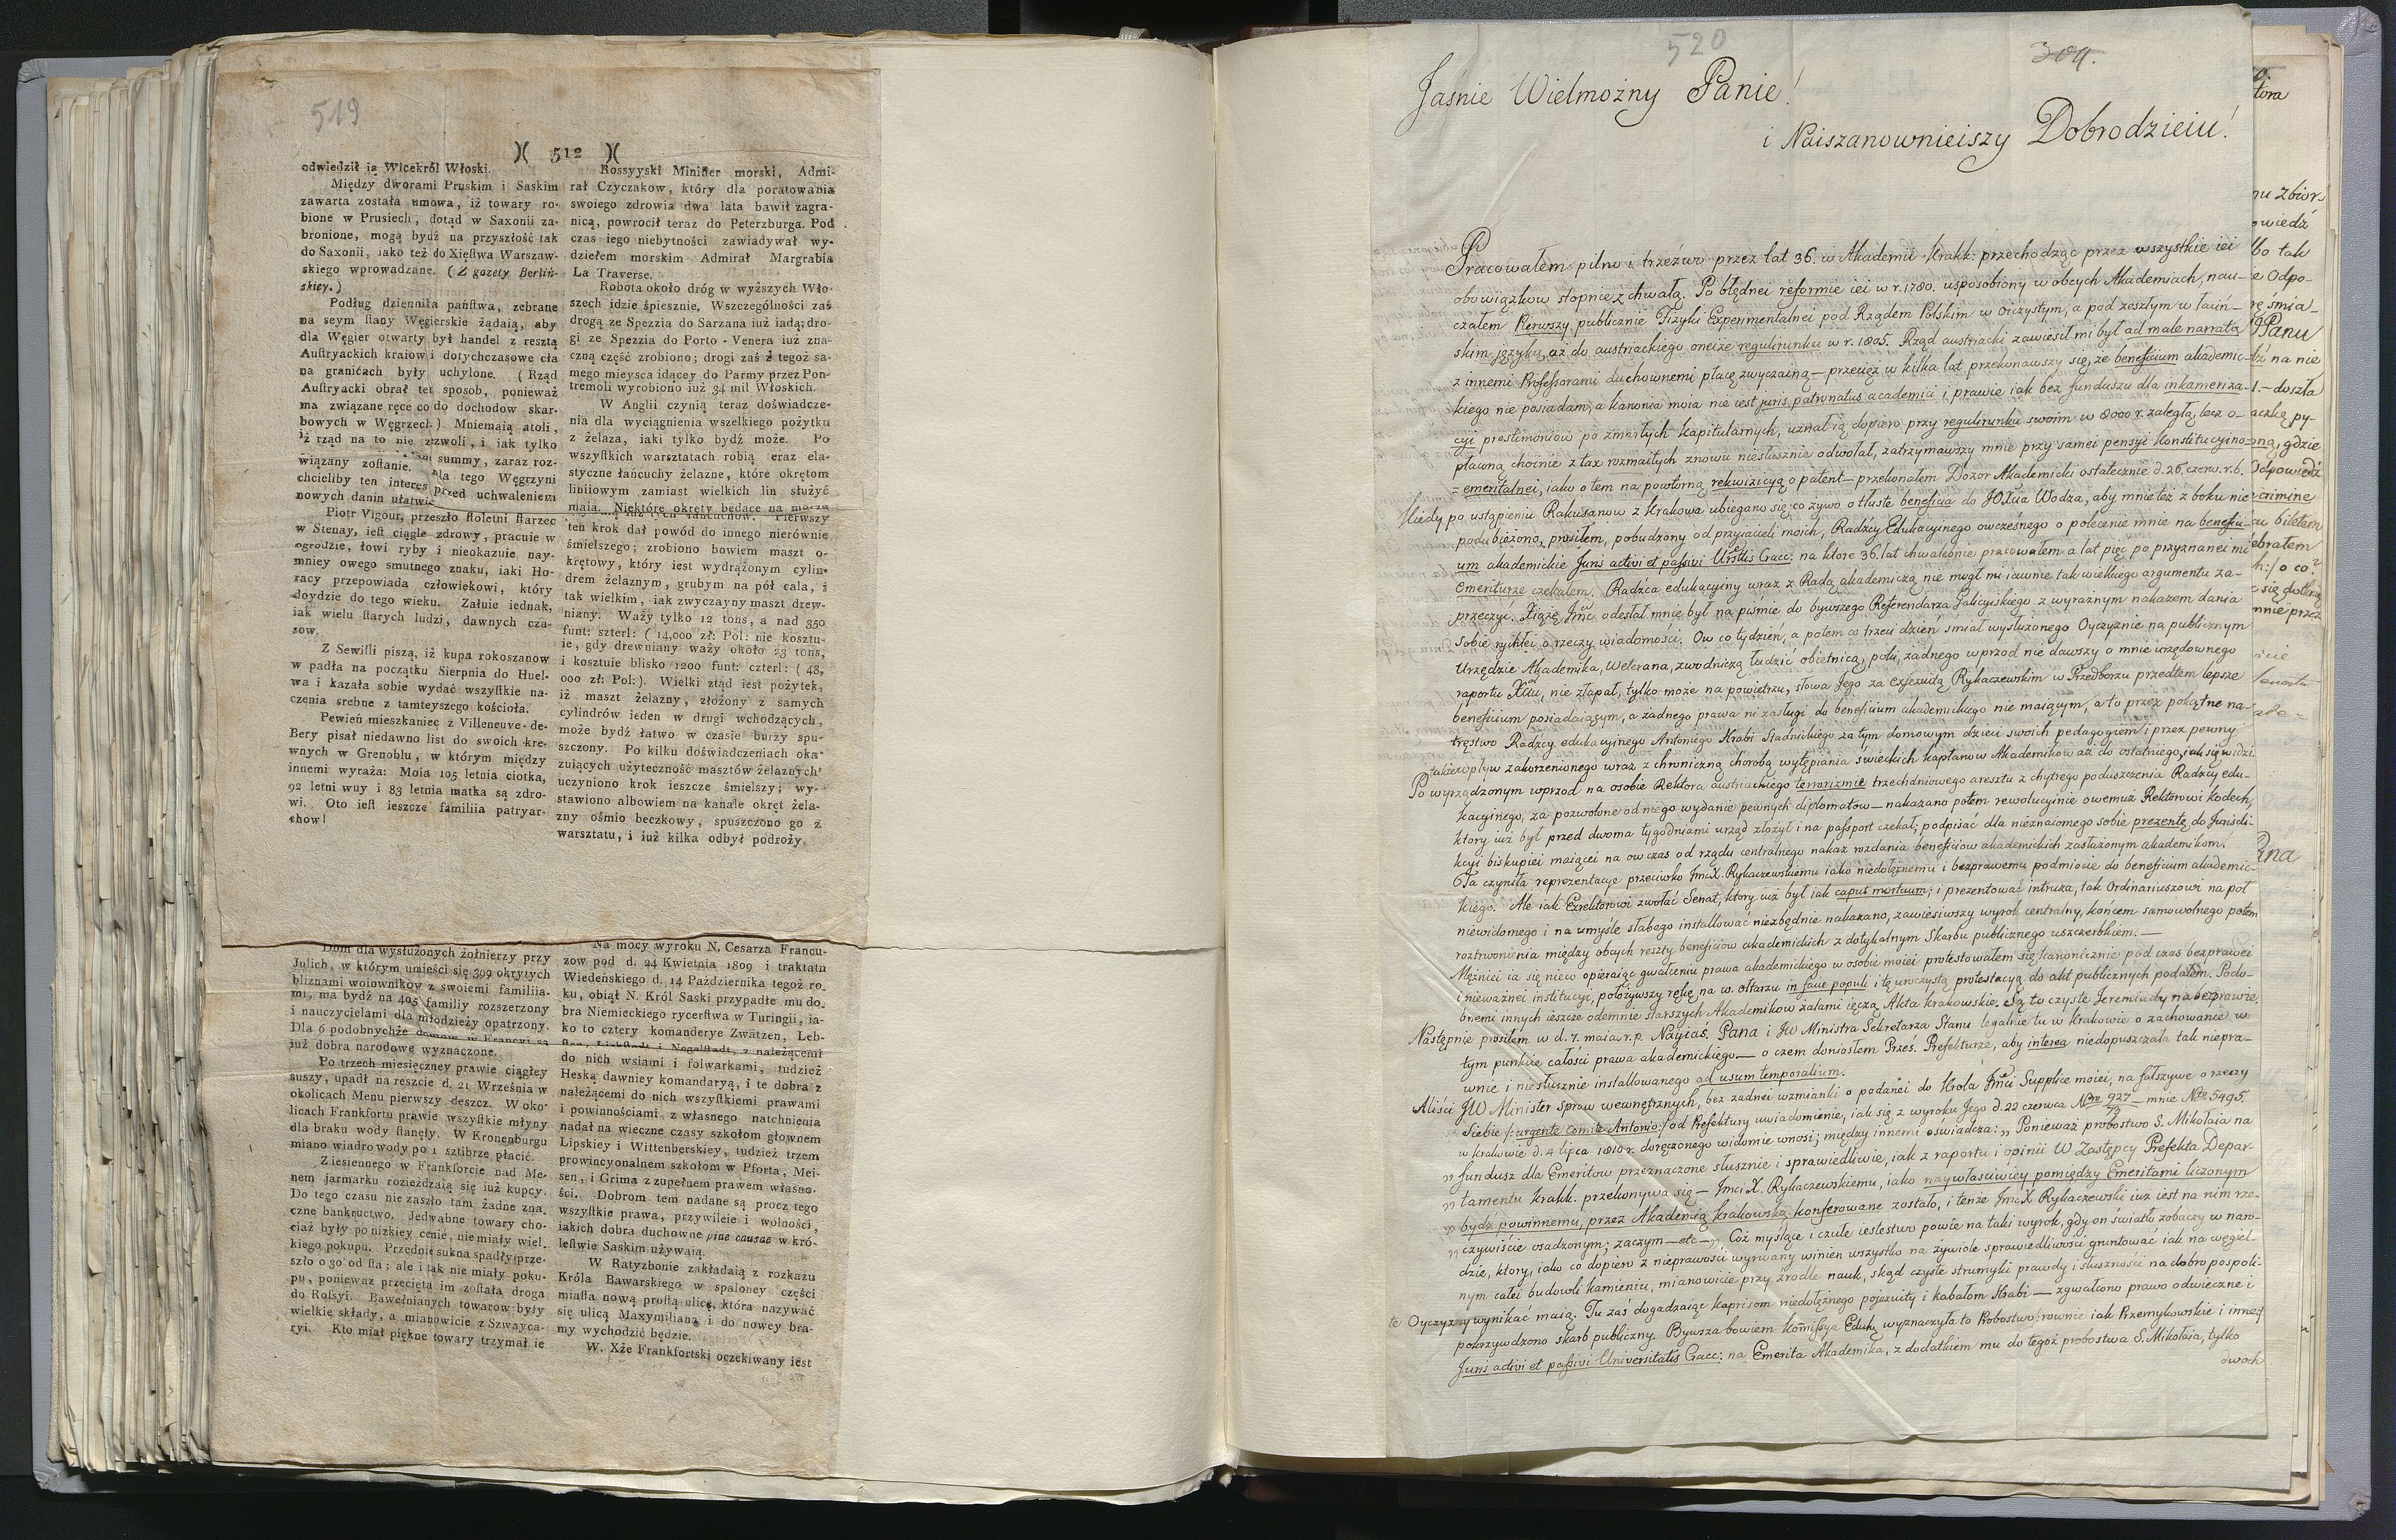 519
)( 512 )(
odwiedził ią Wicekról Włoski.
Między dworami Pruskim i Saskim
zawarta została umowa, iż towary ro-
bione w Prusiech, dotąd w Saxonii za-
bronione, mogą bydź na przyszłość tak
do Saxonii, iako też do Xięstwa Warszaw-
skiego wprowadzane. (Z gazety Berliń-
skiey.)
Podług dziennika państwa, zebrane
na seym stany Węgierskie żądaią, aby
dla Węgier otwarty był handel z resztą
Austryackich kraiow i dotychczasowe cła
na granicach były uchylone. (Rząd
Austryacki obrał ten sposob, ponieważ
ma związane ręce co do dochodow skar-
bowych w Węgrzech.) Mniemaią atoli,
iż rząd na to nie zezwoli, i iak tylko
summy, zaraz roz-
wiązany zostanie. dla tego Węgrzyni
chcieliby ten interes przed uchwaleniem
nowych danin ułatwić
Piotr Vigour, przeszło stoletni starzec
w Stenay, iest ciągle zdrowy, pracuie w
ogrodzie, łowi ryby i nieokazuie nay-
mniey owego smutnego znaku, iaki Ho-
racy przepowiada człowiekowi, który
doydzie do tego wieku. Żałuie iednak,
iak wielu starych ludzi, dawnych cza-
sow.
Z Sewilli piszą, iż kupa rokoszanow
w padła na początku Sierpnia do Huel-
wa i kazała sobie wydać wszystkie na-
czenia srebne z tamteyszego kościoła.
Pewień mieszkaniec z Villeneuve-de-
Bery pisał niedawno list do swoich kre-
wnych w Grenoblu, w którym między
innemi wyraża: Moia 105 letnia ciotka,
92 letni wuy i 83 letnia matka są zdro-
wi. Oto iest ieszcze familiia patryar-
chow!
Dom dla wysłużonych żołnierzy przy
Julich, w którym umieści się 399 okrytych
bliznami woiownikow z swoiemi familiia-
mi, ma bydź na 405 familiy rozszerzony
i nauczycielami dla młodzieży opatrzony.
Dla 6 podobnychże domow w Francyi są
iuż dobra narodowe wyznaczone.
Po trzech miesięczney prawie ciągłey
suszy, upadł na reszcie d. 21 Września w
okolicach Menu pierwszy deszcz. W oko-
licach Frankfortu prawie wszystkie młyny
dla braku wody stanęły. W Kronenburgu
miano wiadro wody po 1 sztibrze płacić.
Z iesiennego w Frankforcie nad Me-
nem jarmarku rozieżdzaią się iuż kupcy.
Do tego czasu nie zaszło tam żadne zna-
czne bankructwo. Jedwabne towary cho-
ciaż były po nizkiey cenie, nie miały wiel-
kiego pokupu. Przednie sukna spadły prze-
szło o 30 od sta; ale i tak nie miały poku-
pu, ponieważ przecięta im została droga
do Rossyi. Bawełnianych towarow były
wielkie składy, a mianowicie z Szwayca-
ryi. Kto miał piękne towary trzymał ie
Rossyyski Minister morski, Admi-
rał Czyczakow, który dla poratowania
swoiego zdrowia dwa lata bawił zagra-
nicą, powrocił teraz do Peterzburga. Pod
czas iego niebytności zawiadywał wy-
działem morskim Admirał Margrabia
La Traverse.
Robota około dróg w wyższych Wło-
szech idzie śpiesznie. Wszczególności zaś
drogą ze Spezzia do Sarzana iuż iadą; dro-
gi ze Spezzia do Porto-Venera iuż zna-
czną część zrobiono; drogi zaś z tegoż sa-
mego mieysca idącey do Parmy przez Pon-
tremoli wyrobiono iuż 34 mil Włoskich.
W Anglii czynią teraz doświadcze-
nia dla wyciągnienia wszelkiego pożytku
z żelaza, iaki tylko bydź może. Po
wszystkich warsztatach robią eraz ela-
styczne łańcuchy żelazne, które okrętom
liniiowym zamiast wielkich lin służyć
maia. Niektóre okręty będące na morzu
łańcuchow. Pierwszy
ten krok dał powód do innego nierównie
śmielszego; zrobiono bowiem maszt o-
krętowy, który iest wydrążonym cylin-
drem żelaznym, grubym na pół cala, i
tak wielkim, iak zwyczayny maszt drew-
niany. Waży tylko 12 tons, a nad 350
funt: szterl: (14,000 zł: Pol: nie kosztu-
ie, gdy drewniany waży około 23 tons,
i kosztuie blisko 1200 funt: czterl: (48,
000 zł: Pol:). Wielki ztąd iest pożytek,
iż maszt żelazny, złożony z samych
cylindrów ieden w drugi wchodzących,
może bydź łatwo w czasie burzy spu-
szczony. Po kilku doświadczeniach oka-
zuiących użyteczność masztów żelaznych
uczyniono krok ieszcze śmielszy; wy-
stawiono albowiem na kanale okręt żela-
zny ośmio beczkowy, spuszczono go z
warsztatu, i iuż kilka odbył podroży.
Na mocy wyroku N. Cesarza Francu-
zow pod d. 24 Kwietnia 1809 i traktatu
Wiedeńskiego d. 14 Października tegoż ro-
ku, obiął N. Król Saski przypadłe mu do-
bra Niemieckiego rycerstwa w Turingii, ia-
ko to cztery komanderye Zwätzen, Leb-
sten, Liebstadt i Negelstadt, z należącemi
do nich wsiami i folwarkami, tudzież
Heską dawniey komandaryą, i te dobra z
należącemi do nich wszystkiemi prawami
i powinnościami z własnego natchnienia
nadał na wieczne czasy szkołom głownem
Lipskiey i Wittenberskiey, tudzież trzem
prowincyonalnem szkołom w Pforta, Mei-
sen, i Grima z zupełnem prawem własno-
ści. Dobrom tem nadane są procz tego
wszystkie prawa, przywileie i wolności,
iakich dobra duchowne piae causae w kró-
lestwie Saskim używaią.
W Ratyzbonie zakładaią z rozkazu
Króla Bawarskiego w spaloney części
miasta nową prostą ulicę, która nazywać
się ulicą Maxymiliana i do nowey bra-
my wychodzić będzie.
W. Xże Frankfortski oczekiwany iest
520
304.
Jaśnie Wielmożny Panie!
i Naiszanownieiszy Dobrodzieiu!
Pracowałem pilno i trzeźwo przez lat 36. w Akademii Krakk: przechodząc przez wszystkie iei
obowiązkow stopnie z chwałą. Po błędnei reformie iei w r. 1780. usposobiony w obcych Akademiach, nau-
czałem Pierwszy publicznie Fizyki Experimentalnei pod Rządem Polskim w oiczystym, a pod zeszłym w łaciń-
skim ięzyku, aż do austriackiego oneiże regulirunku w r. 1805. Rząd austriacki zawiesił mi był ad male narrata
z innemi Professorami duchownemi płacę zwyczainą — przecięż w kilka lat przekonawszy się, że beneficium akademic-
kiego nie posiadam, a kanonia moia nie iest juris patronatus academici i prawie iak bez funduszu dla inkameriza-
cyi prestimoniow po zmarłych kapitularnych, uznał ią dopiero przy regulirunku swoim w 8000 r. zaległą, lecz o-
płaconą choinie z tax rozmaitych znowu niesłusznie odwołał, zatrzymawszy mnie przy samei pensyi konstitucyino-
=emeritalnei, iako o tem na powtorną rekwizicyą o patent — przekonałem Dozor Akademicki ostatecznie d. 26. czerw. r. b.
Kiedy po ustąpieniu Rakusanow z Krakowa ubiegano się co żywo o tłuste beneficia do JOXcia Wodza, aby mnie też z boku nie
podubieżono, prosiłem, pobudzony od przyiacieli moich, Radźcy Edukacyinego owczesnego o polecenie mnie na benefici-
um akademickie Juris activi et passivi Urstis Cracc: na ktore 36. lat chwalebnie pracowałem a lat pięć po przyznanei mi
Emeriturze czekałem. Radźca edukacyiny wraz z Radą akademiczą nie mogł mi iawnie tak wielkiego argumentu za-
przeczyć. Xiążę Jmć odesłał mnie był na piśmie do bywszego Referendarza Galicyiskiego z wyraznym nakazem dania
Sobie rychłei o rzeczy wiadomości. Ow co tydzień, a potem co trzeci dzień śmiał wysłużonego Oyczyznie na publicznym
Urzędzie Akademika, Weterana, zwodniczą łudzić obietnicą, poki, żadnego wprzod nie dawszy o mnie urzędownego
raportu Xciu, nie złapał, tylko może na powietrzu, słowa Jego za exjezuitą Rykaczewskim w Przedborzu przedtem lepsze
beneficium posiadaiącym, a żadnego prawa ni zasługi do beneficium akademickiego nie maiącym, a to przez pokątne na-
tręstwo Radźcy edukacyinego Antoniego Hrabi Stadnickiego za tym domowym dzieci swoich pedagogiem i przez pewny
także wpływ zakorzenionego wraz z chroniczną chorobą wytępiania swieckich kapłanow Akademikow aż do ostatniego, iak się widzi.
Po wyrządzonym wprzod na osobie Rektora austriackiego terrorizmie trzechdniowego aresztu z chytrego poduszczenia Radźcy edu-
kacyinego, za pozwolone od niego wydanie pewnych diplomatow — nakazano potem rewolucyinie owemuż Rektorowi Kodesch,
ktory iuż był przed dwoma tygodniami urząd złożył i na passport czekał, podpisać dla nieznaiomego sobie prezentę do Jurisdi-
kcyi biskupiei maiącei na owczas od rządu centralnego nakaz rozdania beneficiow akademickich zasłużonym akademikom.
Ta czyniła reprezentacye przeciwko JmciX. Rykaczewskiemu iako niedołężnemu i bezprawemu podmiocie do beneficium akademic-
kiego. Ale iak Exrektorowi zwołać Senat, ktory iuż był iak caput mortuum; i prezentować intruza, tak Ordinariuszowi na poł
niewidomego i na umyśle słabego installować niezbędnie nakazano, zawiesiwszy wyrok centralny, końcem samowolnego potem
roztrwonienia między obcych reszty beneficiow akademickich z dotykalnym Skarbu publicznego uszczerbkiem. —
Mężniei ia się nieco opieraiąc gwałceniu prawa akademickiego w osobie moiei protestowałem się kanonicznie pod czas bezprawei
i nieważnei institucyi, położywszy rękę na w. ołtarzu in facie populi i tę uroczystą protestacyą do akt publicznych podałem. Podo-
bnemi innych ieszcze odemnie starszych Akademikow żalami ięczą Akta krakowskie. Są to czyste Jeremiady na bezprawie.
Następnie prosiłem w d. 7. maia r.p. Nayiaś. Pana i JW Ministra Sekretarza Stanu legalnie tu w Krakowie o zachowanie w
tym punkcie całości prawa akademickiego — o czem doniosłem Prześ. Prefekturze, aby interea niedopuszczała tak niepra-
wnie i niesłusznie installowanego ad usum temporalium.
Aliści JW Minister Spraw wewnętrznych, bez żadnei wzmianki o podanei do Krola Jmci Supplice moiei, na fałszywe o rzeczy
Siebie /: urgente Comite Antonio :/ od Prefektury uwiadomienie, iak się z wyroku Jego d. 22 czerwca Nro 927 — mnie Nro 5495.
w Krakowie d. 4 lipca 1810 r. doręczonego widomie wnosi; między innemi oświadcza: „ Ponieważ probostwo S. Mikołaia na
„ fundusz dla Emeritow przeznaczone słusznie i sprawiedliwie, iak z raportu i opinii W Zastępcy Prefekta Depar-
„ tamentu krakk. przekonywa się — Jmci X. Rykaczewskiemu, iako naywłaściwiey pomiędzy Emeritami liczonym
„ bydź powinnemu, przez Akademią krakowską konferowane zostało, i tenże JmciX Rykaczewski iuż iest na nim rze-
„ czywiście osadzonym; zaczym — etc — „ Coż myślące i czułe iestestwo powie na taki wyrok, gdy on światło zobaczy w naro-
dzie, ktory, iako co dopiero z nieprawości wyrwany winien wszystko na żywiole sprawiedliwości gruntować iak na węgiel-
nym całei budowli kamieniu, mianowicie przy źrodle nauk, skąd czyste strumyki prawdy i słuszności na dobro pospoli-
te Oyczyzny wynikać maią. Tu zaś dogadzaiąc kaprisom niedołężnego pojezuity i kabałom Hrabi — zgwałcono prawo odwieczne i
pokrzywdzono skarb publiczny. Bywsza bowiem Kommissya Eduk, wyznaczyła to Probostwo, rownie iak Przemykowskie i inne
Juris activi et passivi Universitatis Cracc: na Emerita Akademika, z dodatkiem mu do tegoż probostwa S. Mikołaia, tylko
dwoch